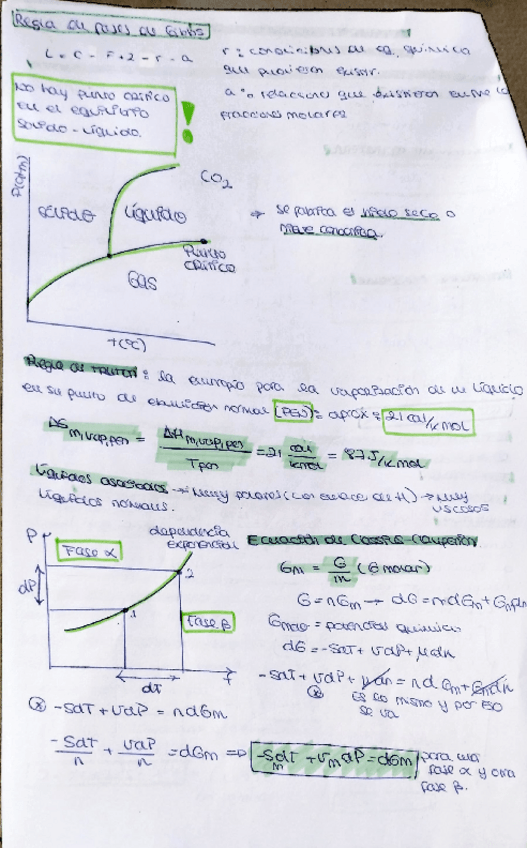 Regla de fases de Gibbs
L = C - F + 2 - r - a
r = condiciones de eq. química
que pudieran existir.
a = relaciones que existieran entre
fracciones molares
No hay punto crítico
en el equilibrio
sólido-líquido.
!
P(atm)
CO₂
Sólido
Líquido
Punto
crítico
Gas
T(ºC)
→ Se fabrica el hielo seco o
nieve carbónica.
Regla de Trouton: la entropía para la vaporización de un líquido
en su punto de ebullición normal (PEN) = aprox = 21 cal/K mol
ΔS m,vap,pen = ΔH m,vap,pen / Tpen = 21 cal/Kmol = 87 J/K mol
Líquidos asociados → Muy polares (con enlace de H) → Muy viscosos
Líquidos normales.
Ecuación de Clausius Clapeyron
P
dependencia
exponencial
Fase α
2
dP
1
Fase β
dT
T
Gm = G/n (G molar)
G = nGm → dG = ndGm + Gmdn
Gmolar = potencial químico
dG = -SdT + VdP + μdn
-SdT + VdP + μdn = ndGm + Gmdn
Es lo mismo y por eso
se va
-SdT + VdP = ndGm
-SdT/n + VdP/n = dGm ⇒ -SmdT + VmdP = dGm
para una
fase α y otra
fase β.